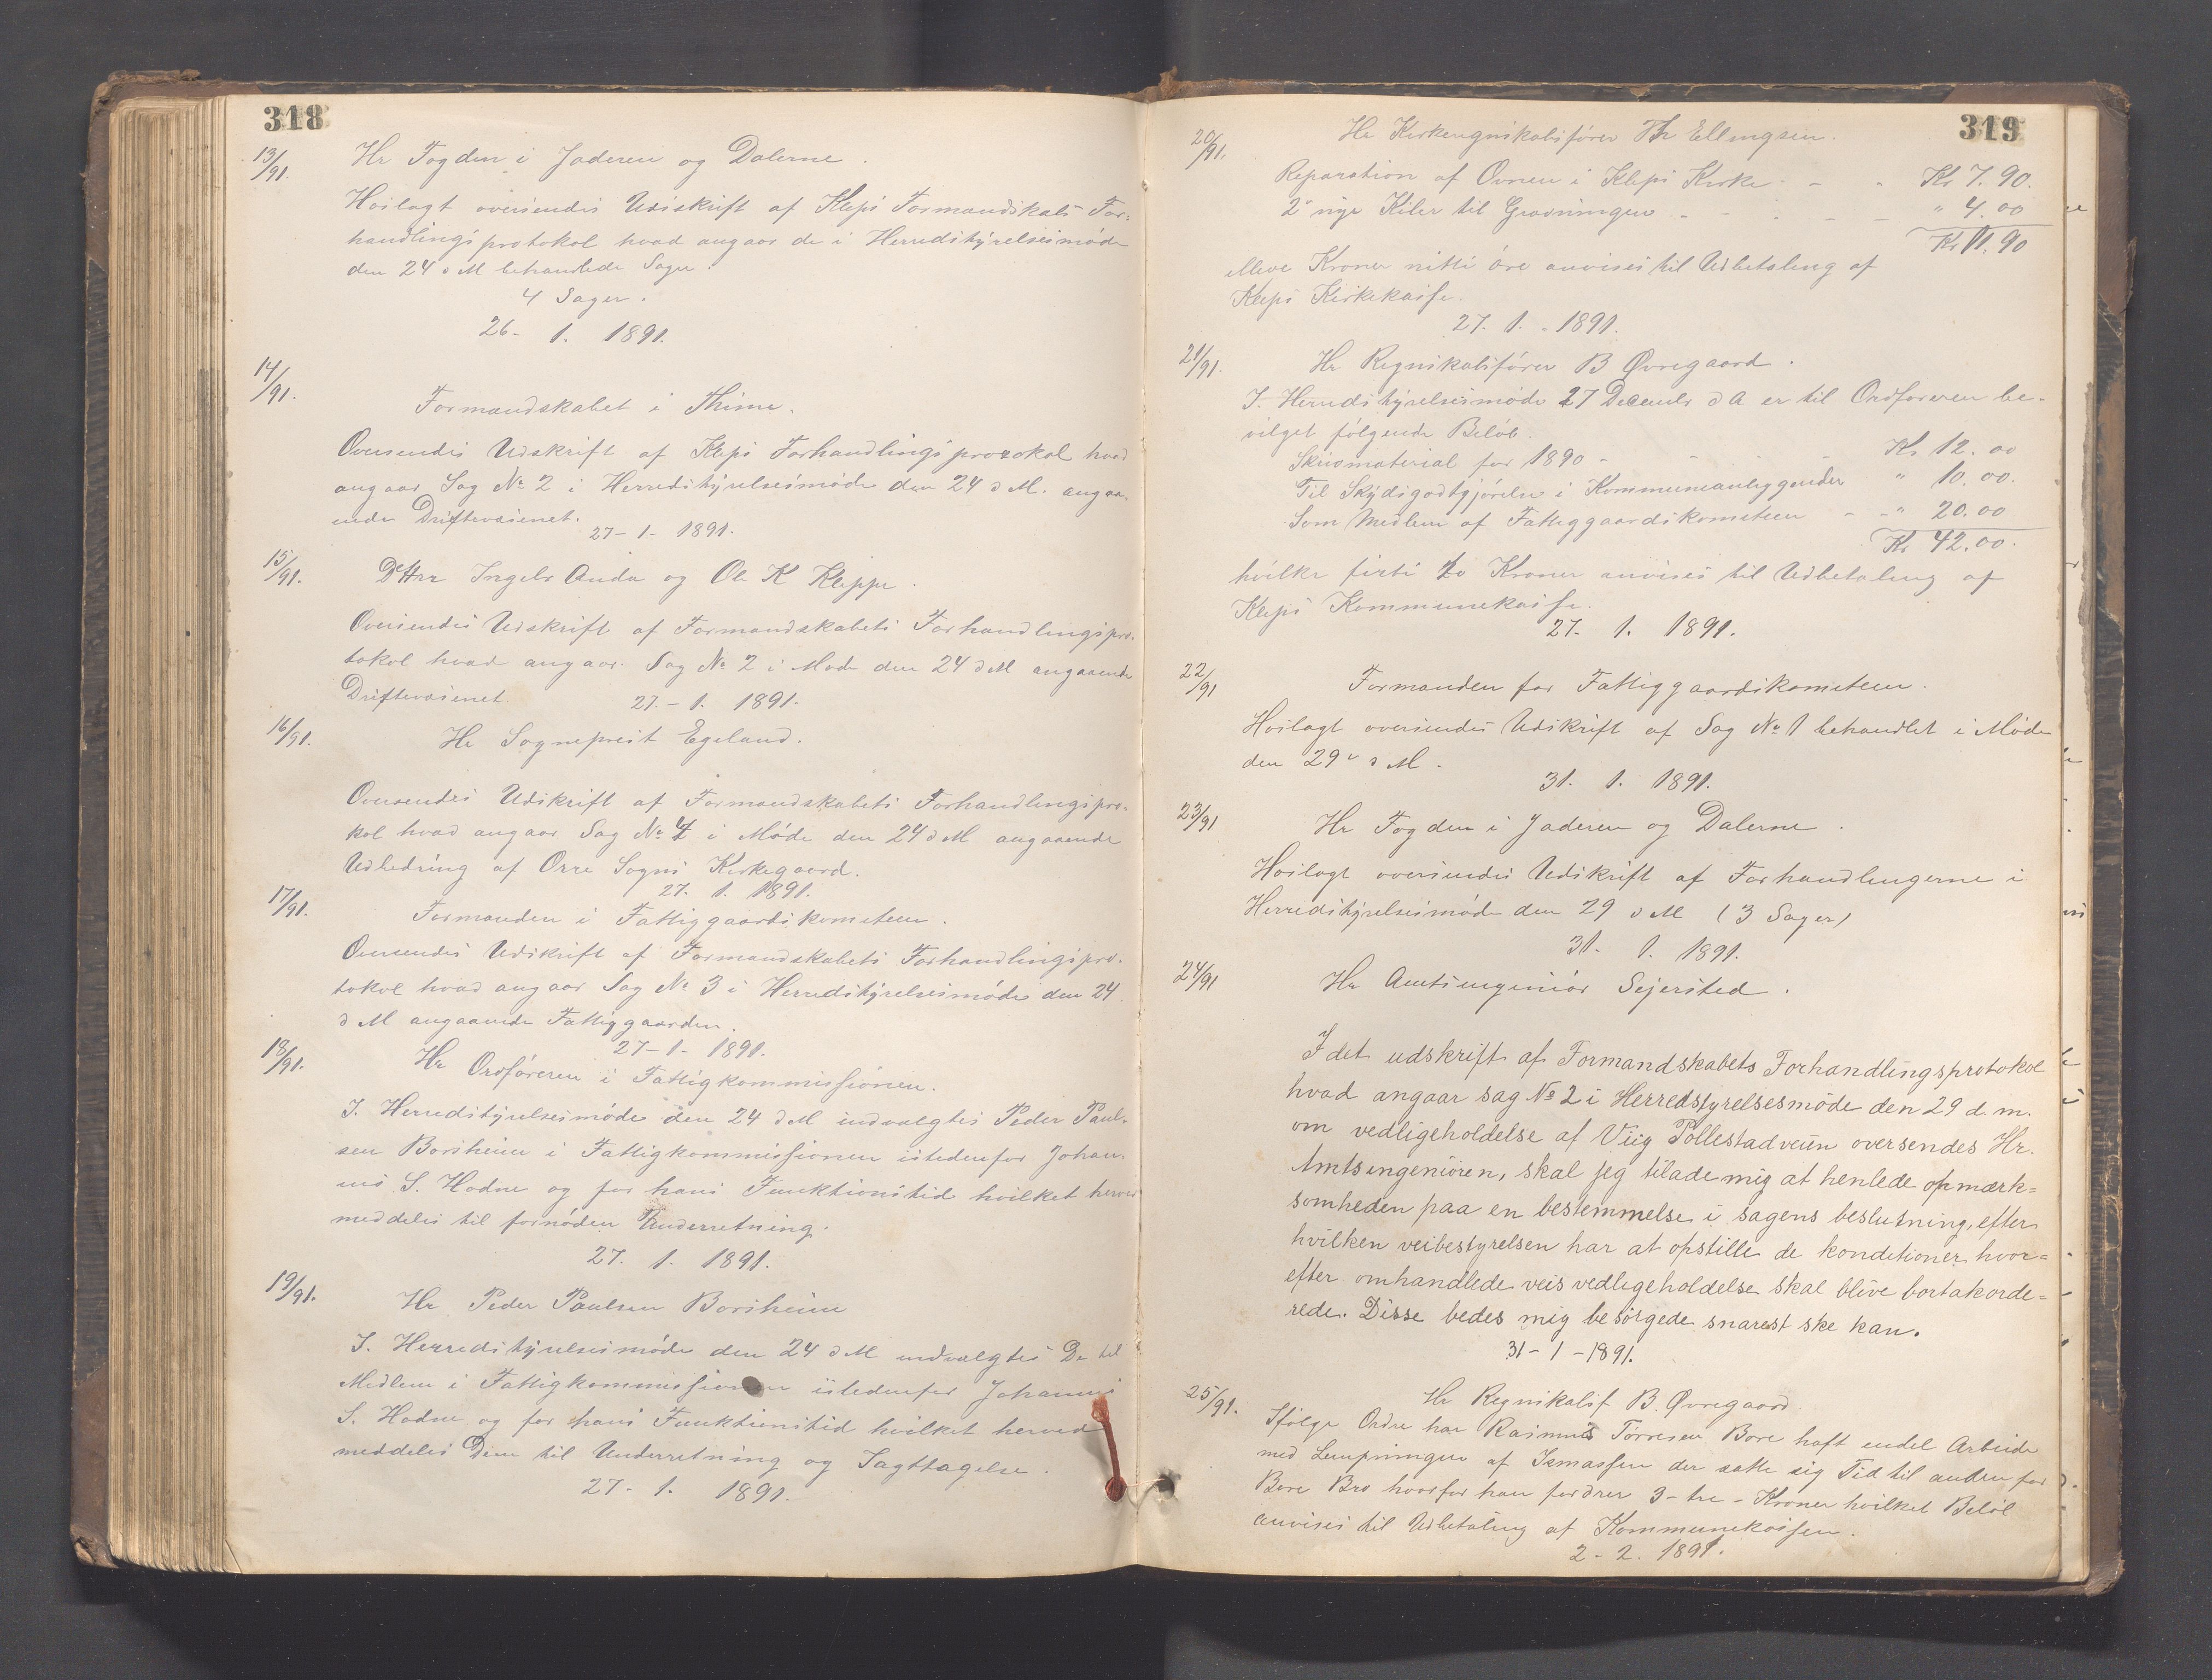 318
13/91.
Hr Fogden i Jaderen og Dalerne.
Hoslagt oversendes Udskrift af Kleps Formandskabs For-
handlingsprotokol hvad angaar de i Herredstyrelsesmöde
den 24 d M behandlede Sager.
4 Sager.
26- 1. 1891.
14/91.
Formandskabet i Thime.
Oversendes Udskrift af Kleps Forhandlingsprotokol hvad
angaar Sag № 2 i Herredstyrelsesmöde den 24 d M. angaa-
ende Driftevæsenet.
27-1- 1891.
15/91.
DHrr Ingebr Anda og Ole K Kleppe.
Oversendes Udskrift af Formandskabets Forhandlingspro-
tokol hvad angaar Sag № 2 i Mode den 24 d M angaaende
Driftevæsenet
27.-1. 1891.
16/91.
Hr Sogneprest Egeland.
Oversendes Udskrift af Formandskabets Forhandlingspro-
kol hvad angaar Sag № 4 i Möde den 24 d M angaaende
Udbedring af Orre Sogns Kirkegaard.
27. 1. 1891.
17/91.
Formanden i Fattiggaardskometeen.
Oversendes Udskrift af Formandskabets Forhandlingspro-
tokol hvad angaar Sag № 3 i Herredstyrelsesmöde den 24
d M angaaende Fattiggaarden.
27-1- 1891.
18/91.
Hr Ordföreren i Fattigkommissionen.
I. Herredstyrelsesmöde den 24 d M indvalgtes Peder Paul-
sen Borsheim i Fattigkommissionen istedenfor Johan-
nes S. Hodne og for hans Funktionstid hvilket herved
meddeles til fornöden Underretning.
27. 1. 1891.
19/91.
Hr Peder Paulsen Borsheim
I. Herredstyrelsesmöde den 24 d M indvalgtes De til
Medlem i Fattigkommissionen istedenfor Johannes
S. Hodne og for hans Funktionstid hvilket herved
meddeles Dem til Underretning og Iagttagelse.
27- 1. 1891.
319
20/91.
Hr Kirkeregnskabsförer Th Ellingsen.
Reparation af Ovnen i Kleps Kirke - - Kr 7.90.
2 nye Kiler til Gravningen - - - - " 4.00
Kr 11.90
elleve Kroner nitti öre anvises til Udbetaling af
Kleps Kirkekasse.
27. 1. 1891.
21/91.
Hr Regnskabsförer B Øvregaard.
I. Herredstyrelsesmöde 27 Decembr d A er til Ordföreren be-
vilget fölgende Belöb.
Skrivmaterial for 1890 - - - - Kr 12.00
Til Skydsgodtgjörelse i Kommuneanliggender " 10.00.
Som Medlem af Fattiggaardskometeen - - " 20.00
Kr 42.00.
hvilke firti to Kroner anvises til Udbetaling af
Kleps Kommunekasse.
27- 1. 1891.
22/91
Formanden for Fattiggaardskometeen.
Hoslagt oversendes Udskrift af Sag № 1 behandlet i Möde
den 29 d M.
31. 1. 1891.
23/91
Hr Fogden i Jaderen og Dalerne.
Hoslagt oversendes Udskrift af Forhandlingerne i
Herredstyrelsesmöde den 29 d M (3 Sager)
31- 1. 1891.
24/91
Hr Amtsingeniör Sejersted.
Idet udskrift af Formandskabets Forhandlingsprotokol
hvad angaar sag № 2 i Herredstyrelsesmöde den 29 d. m.
om vedligeholdelse af Viig Pollestadveien oversendes Hr.
Amtsingeniören, skal jeg tillade mig at henlede opmærk=
somheden paa en bestemmelse i sagens beslutning, efter
hvilken veibestyrelsen har at opstille de konditioner hvor=
efter omhandlede veis vedligeholdelse skal blive bortakorde=
rede. Disse bedes mig besörgede snarest ske kan.
31-1-1891.
25/91.
Hr Regnskabsf B. Øvregaard
Ifölge Ordre har Rasmus Torresen Bore haft endel Arbeide
med Lempningen af Ismassen der satte sig Tid til anden for
Bore Bro hvorfor han fordrer 3-tre-Kroner hvilket Belöb
anvises til Udbetaling af Kommunekassen.
2-2. 1891.